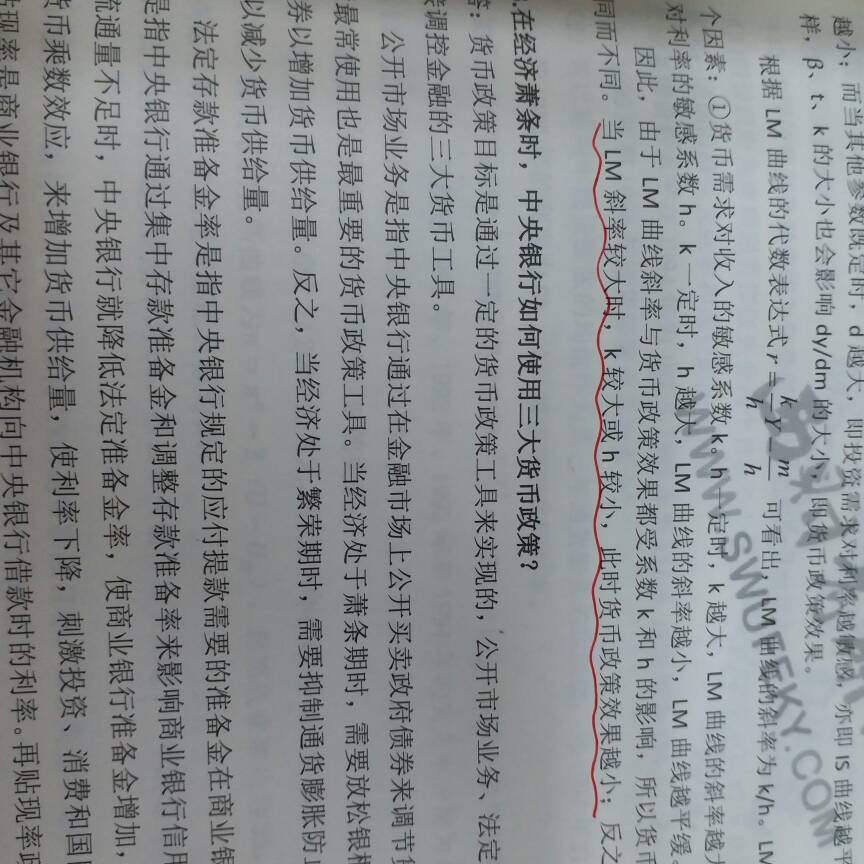 越小；而当其他参数既定时，d 越大，即投资需求对利率越敏感，亦即 IS 曲线越平
样，β、t、k 的大小也会影响 dy/dm 的大小，即货币政策效果。
根据 LM 曲线的代数表达式 r = k/h Y - m/h 可看出，LM 曲线的斜率为 k/h。LM
个因素：①货币需求对收入的敏感系数 k。h 一定时，k 越大，LM 曲线的斜率越
对利率的敏感系数 h。k 一定时，h 越大，LM 曲线的斜率越小，LM 曲线越平缓
因此，由于 LM 曲线斜率与货币政策效果都受系数 k 和 h 的影响，所以货币
同而不同。当 LM 斜率较大时，k 较大或 h 较小，此时货币政策效果越小；反之
.在经济萧条时，中央银行如何使用三大货币政策？
答：货币政策目标是通过一定的货币政策工具来实现的，公开市场业务、法定
调控金融的三大货币工具。
公开市场业务是指中央银行通过在金融市场上公开买卖政府债券来调节货
最常使用也是最重要的货币政策工具。当经济处于萧条期时，需要放松银根
券以增加货币供给量。反之，当经济处于繁荣期时，需要抑制通货膨胀防止
以减少货币供给量。
法定存款准备金率是指中央银行规定的应付提款需要的准备金在商业银
是指中央银行通过集中存款准备金和调整存款准备率来影响商业银行信用
流通量不足时，中央银行就降低法定准备金率，使商业银行准备金增加，
货币乘数效应，来增加货币供给量，使利率下降，刺激投资、消费和国
贴现率是商业银行及其它金融机构向中央银行借款时的利率。再贴现率政
WWW.SWUFEKY.COM